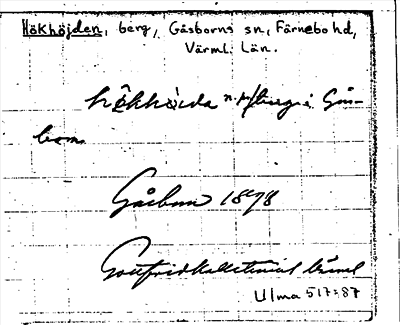 Hökhöjden, berg, Gåsborns sn, Färnebo hd,
Värml. Län.
hökhöida n. på berg i Gås-
born
Gåsborn 1898
Gottfrid Kallstenius
Ulma 517:87